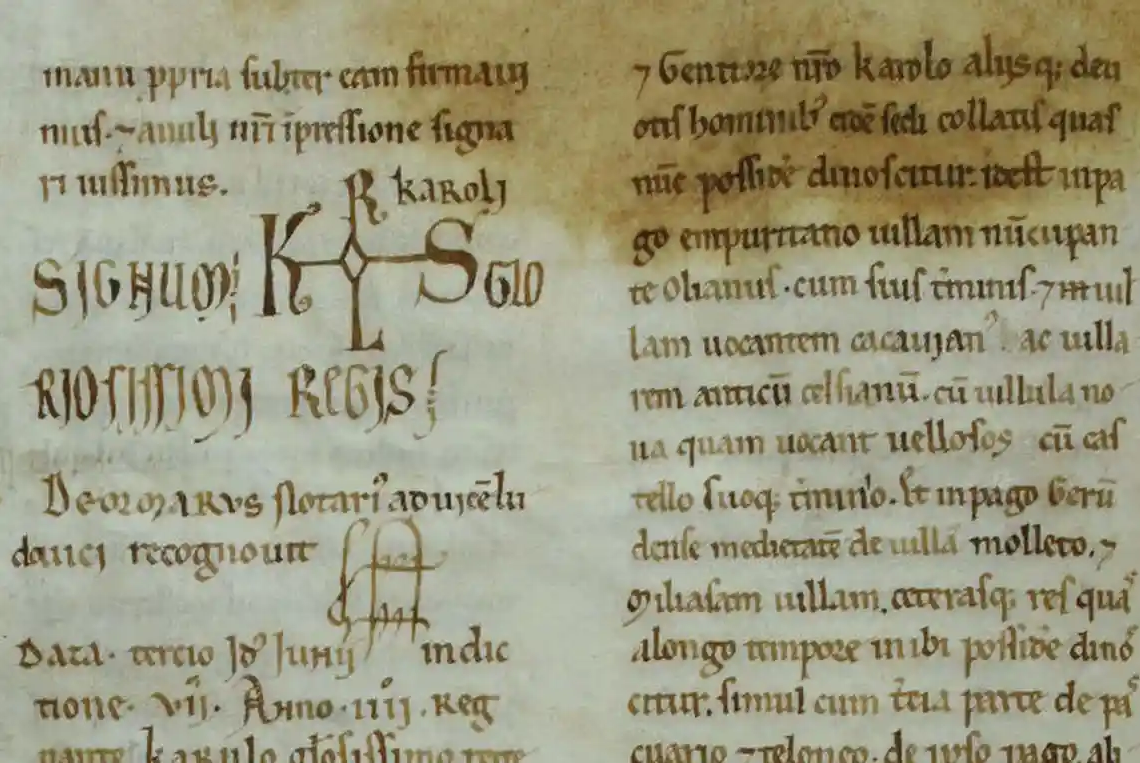 manu ppria subter eam firmaui
mus. ⁊ anuli nr̄i īpressione signa
ri iussimus.
R karolj
SIGNUM K S glo
L
RIOSISSIMI REGIS
Deormarus Notari⁹ ad uicē lu
douici recognouit
Data. tercio Id⁹ Junij indic
tione. vii. Anno. iiij. Reg
nante karulo glosissimo rege
⁊ Genitore nr̄o karolo alijsq; deu
otis hominib⁹ eidē sedi collatis quas
nūc possidē dinoscitur. idest inpa
go empuritano uillam nūcupan
te olianus. cum suis t̄minis. ⁊ in uil
lam uocantem cacauian⁹. ac uilla
rem anticū celsianū. cū uillula no
ua quam uocant uellosos cū cas
tello suoq; t̄mino. Et in pago Gerū
dense medietatē de uilla molleto. ⁊
Miliasam uillam. ceterasq; res qua⁹
alongo tempore inibi possidē dino⁹
citur. simul cum t̄cia parte de pa⁹
cuario ⁊ teloneo. de ipso pago. ali